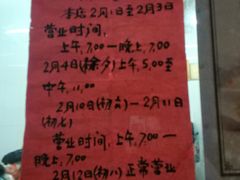 本店2月1日至2月3日
营业时间,
上午,7,00一晚上,7,00
2月4日(除夕)上午,5.00至
中午,11,00
2月10日(初六)—2月11日
(初七)
营业时间,上午,7,00一
晚上,7,00
2月12日(初八)正常营业